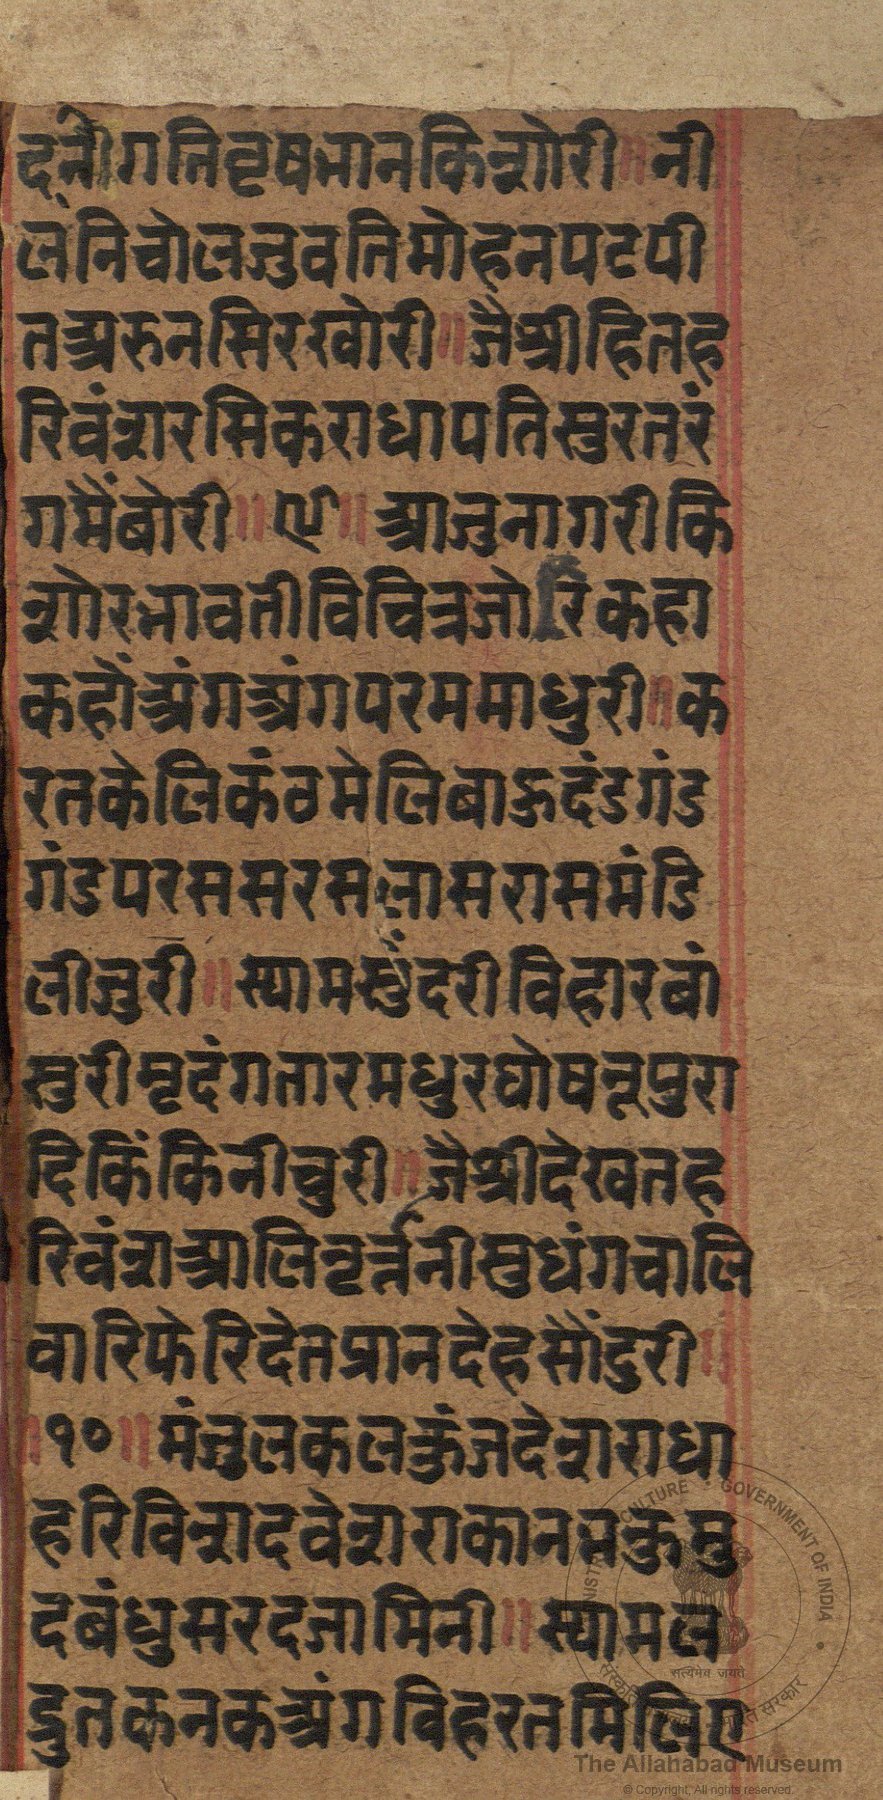 दनीगतिवृषभानकिशोरी॥नी
लनिचोलजुवतिमोहनपटपी
तअरुनसिरखोरी॥जैश्रीहितह
रिवंशरसिकराधापतिसुरतरं
गमैंबोरी॥९॥आजुनागरीकि
शोरभावतीविचित्रजोरिकहा
कहौंअंगअंगपरममाधुरी॥क
रतकेलिकंठमेलिबाऊदंडगंड
गंडपरससरसलासरासमंडि
लीजुरी॥स्यामसुंदरीविहारबां
सुरीमृदंगतारमधुरघोषनूपुरा
दिकिंकिनीचुरी॥जैश्रीदेखतह
रिवंशआलिनृर्त्तनीसुधंगचालि
वारिफेरिदेतप्रानदेहसौंदुरी॥
॥१०॥मंजुलकलकुंजदेशराधा
हरिविशदवेशराकानभकुमु
दबंधुसरदजामिनी॥स्यामल
दुतकनकअंगविहरतमिलिए
MINISTRY OF CULTURE • GOVERNMENT OF INDIA
सत्यमेव जयते
संस्कृति मंत्रालय • भारत सरकार
The Allahabad Museum
© Copyright, All rights reserved.